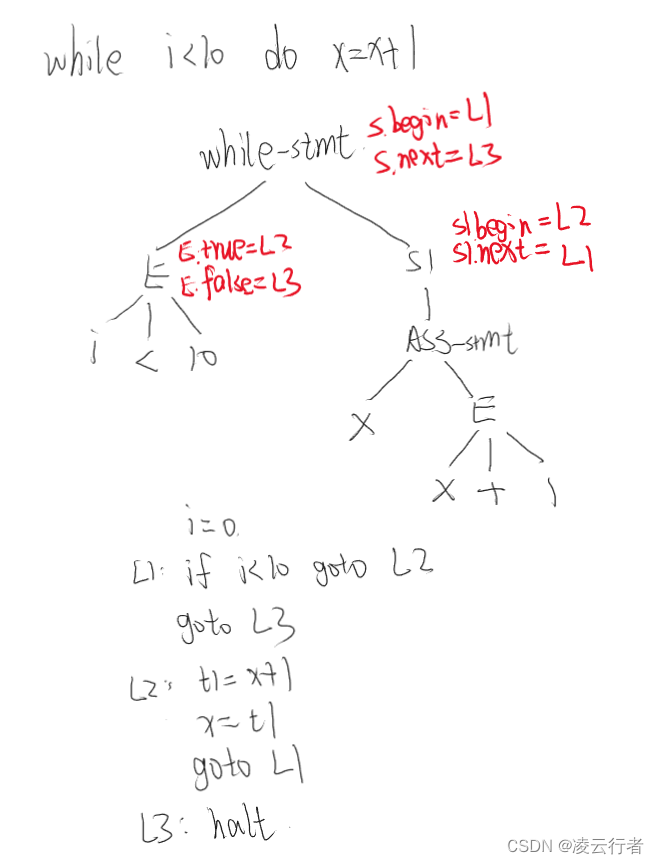 while i<10 do x=x+1
while-stmt
S.begin=L1
S.next=L3
E
E.true=L2
E.false=L3
S1
S1.begin=L2
S1.next=L1
i < 10
ASS-stmt
x
E
x + 1
i=0
L1: if i<10 goto L2
goto L3
L2: t1=x+1
x=t1
goto L1
L3: halt
CSDN @凌云行者